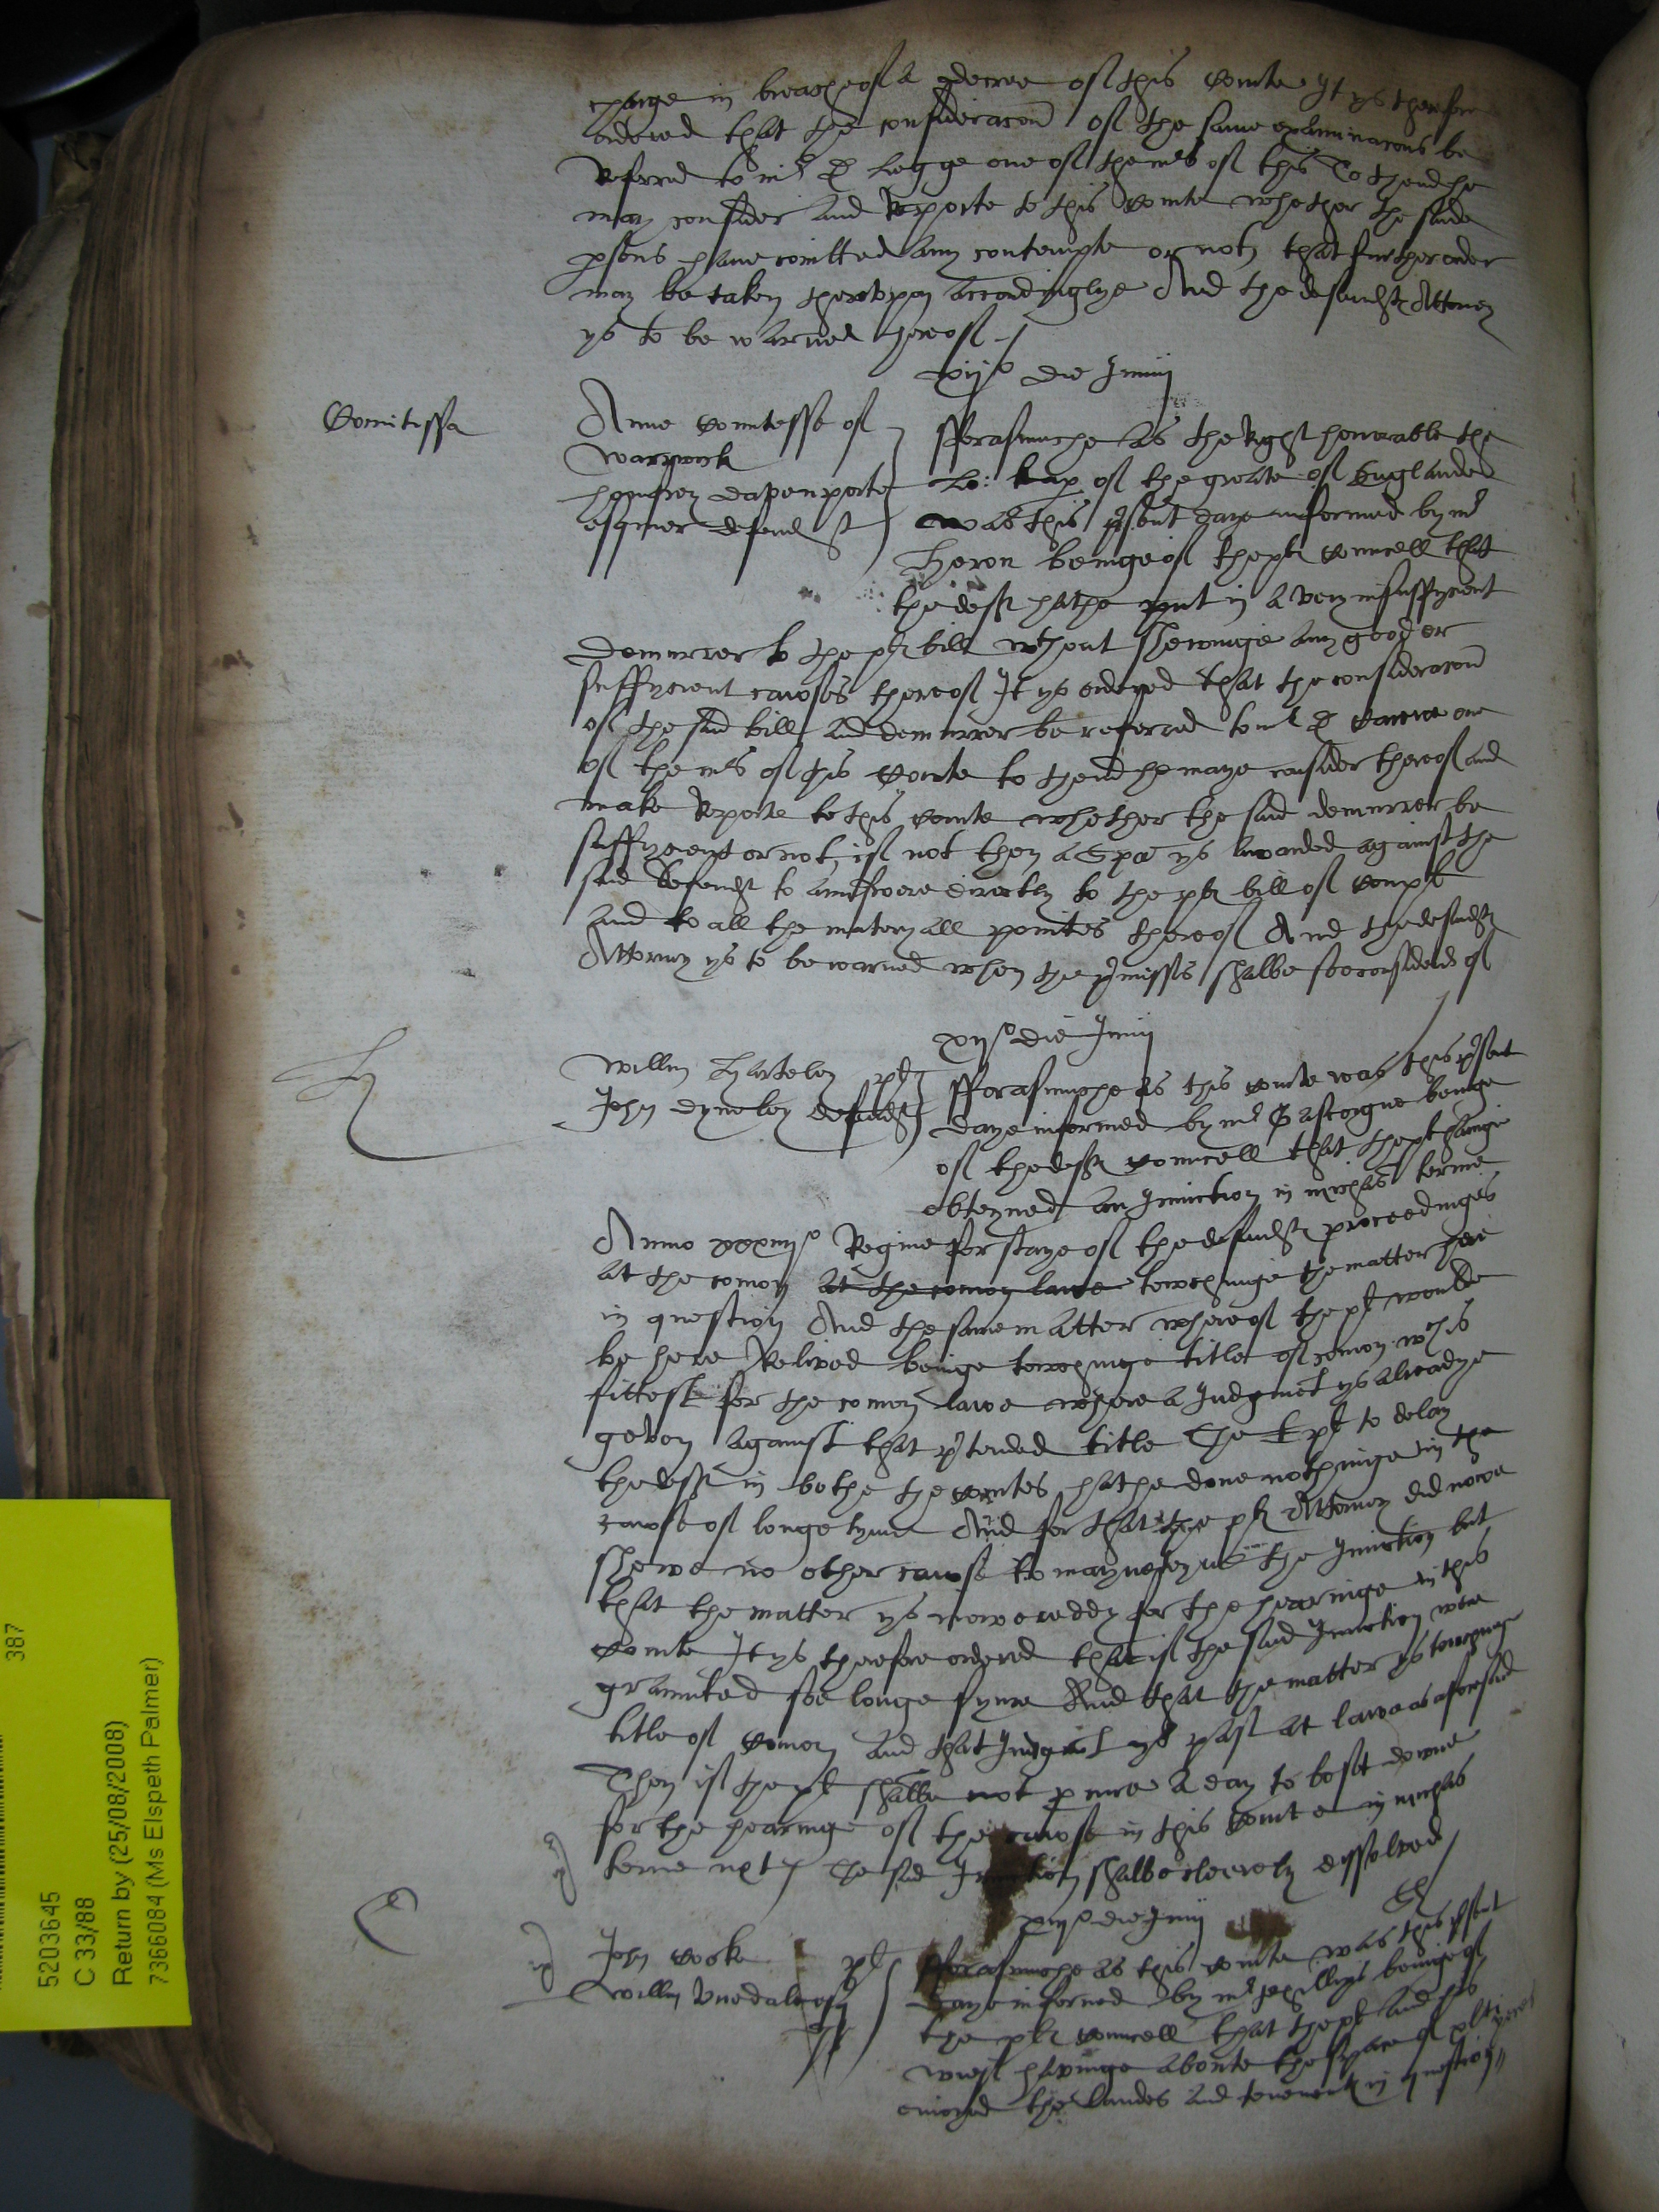 charge in breache of a decree of this Courte It ys therefore
ordered that the consideracon of the same examinacons be
Referred to mr D Legge one of the mrs of this Co thend he
may consider and Reporte to this Courte whether the saide
psons have comitted any contempte or not, that further order
may be taken therevpon accordinglye And the defendtes Attorney
ys to be warned hereof
die Junij
Comitissa
Anne Countesse of
Warrwick
Homfrey Davenporte
esquier defend
fforasmuche as the Right honorable the
Lo: keap of the greate of Englande
was this psent daye informed by mr
Heron beinge of the pltes Councell that
the deft hathe put in a very insuffycient
demurrer to the pltes bill wthout shewinge any good or
suffycient causes thereof It ys ordered that the consideracon
of the said bill and demurrer be referred to mr D Carewe one
of the mrs of this Courte to thend he maye consider thereof and
make Reporte to this Courte whether the said demurrer be
suffycient or not, if not then a Spa ys awarded against the
said defendt to aunswere directly to the pltes bill of Complt
and to all the materyall pointes thereof And the defendtes
Attorney ys to be warned when the pmisses shalbe soe considered of
die Junij
Willm Harteley plt
John Dyneley defendt
fforasmuche as this Courte was this psent
daye informed by mr Gascoigne beinge
of the deftes Councell that the plt havinge
obteyned an Iniunction in michas terme
Anno Regine for staye of the defendtes proceedinges
at the comon at the comon lawe towchinge the matter here
in question And the same matter whereof the plt woulde
be here Relived beinge towchinge title of comon wch is
fittest for the comon lawe where a Iudgmt ys alreadye
geven against that ptended title The plt to delay
the deft in bothe the Courtes hathe done nothinge in the
cause of longe tyme And for that the pltes Attorney did nowe
shewe no other cause to maynteyne the Iniunction but
that the matter ys nowe reddy for the hearinge in this
Courte It ys therefore ordered that if the said Iniunction were
graunted soe longe synce And that the matter ys towchinge
title of Comon and that Iudgmt ys past at lawe as aforesaid
Then if the plt shall not pcure a day to be sett downe
for the hearinge of the cause in this Courte in michas
terme next, The said Iniunction shalbe cleerely dissolved
die Junij
John Cocke plt
Willm Vvedale
fforasmuche as this Courte was this psent
daye informed by mr Phillips beinge of
the pltes Councell that the plt and his
wief havinge aboute the space of yeres
enioyed the landes and tenementes in question
387
5203645
C 33/88
Return by (25/08/2008)
7366084 (Ms Elspeth Palmer)